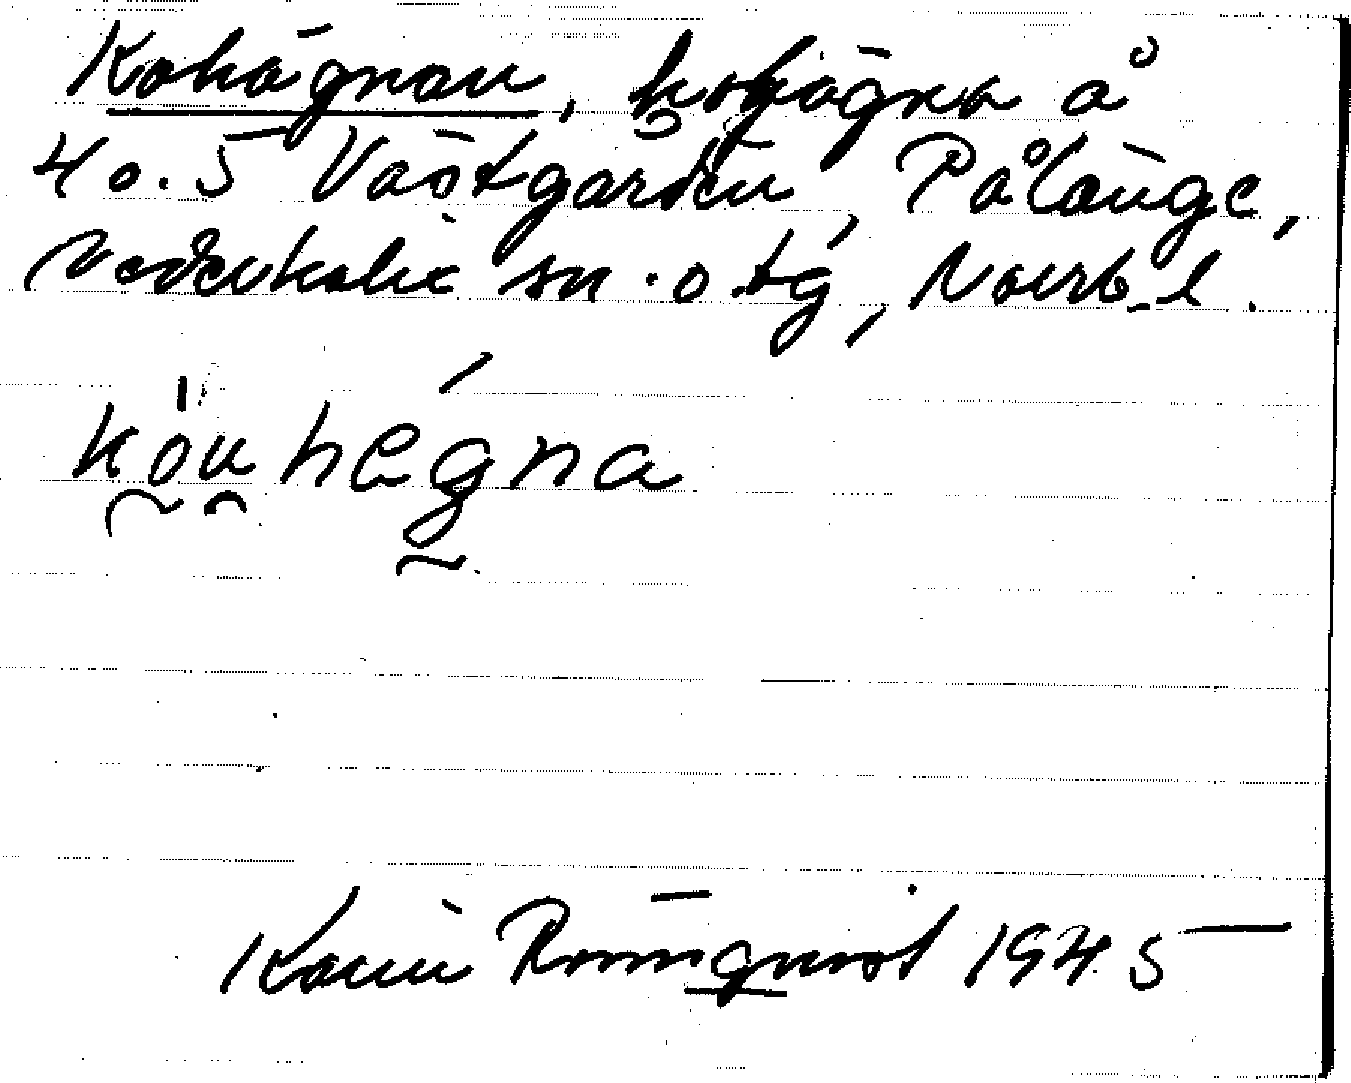 Kohägnan, kohägna å
4 o. 5 Västgården, Pålänge,
Nederkalix sn. o. tg, Norrb. l.
Karin Rönnqvist 1945